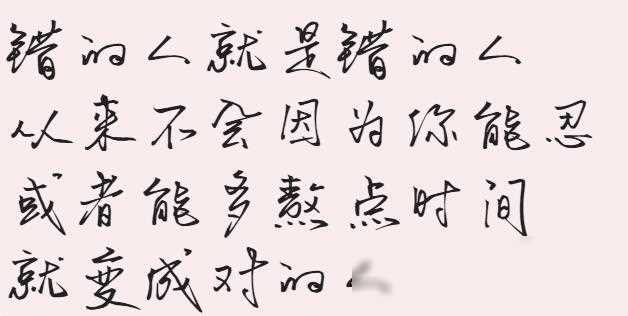 错的人就是错的人
从来不会因为你能忍
或者能多熬点时间
就变成对的